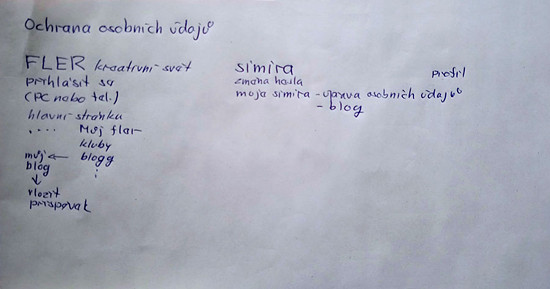 Ochrana osobních údajů
FLER kreativní svět
přihlásit sa
(PC nebo tel.)
hlavní stránku
.... Můj fler
kluby
můj ← blogg
blog
↓
vložit
příspěvek
simira
změna hasla
moja simira - úprava osobních údajů
- blog
profil